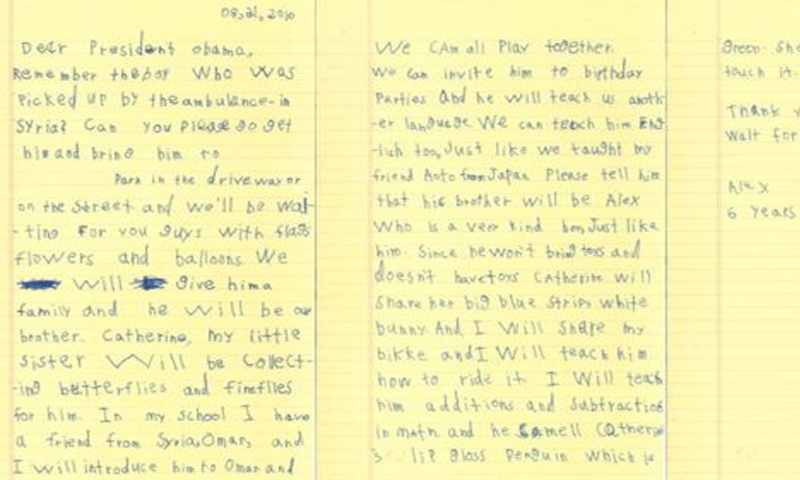 08,21,2010
Dear President obama,
Remember the boy who was
Picked up by the ambulance in
Syria? Can you please go get
him and bring him to
Park in the driveway or
on the street and we'll be wai-
-ting for you guys with flags
flowers and balloons. We
will give him a
family and he will be our
brother. Catherine, my little
sister will be collect-
-ing butterflies and fireflies
for him. In my school I have
a friend from Syria, Omar, and
I will introduce him to Omar and
We can all play together.
We can invite him to birthday
Parties and he will teach us anoth-
-er language. We can teach him Eng-
-lish too, Just like we taught my
friend Aoto from Japan. Please tell him
that his brother will be Alex
Who is a very kind boy, Just like
him. Since he won't bring toys and
doesn't have toys Catherine will
share her big blue stripy white
bunny. And I will share my
bikke and I will teach him
how to ride it. I will teach
him additions and subtractions
in math and he smell Catherine
s lip gloss Penguin which is
Green. She
touch it.
Thank y
Wait for
Alex
6 years